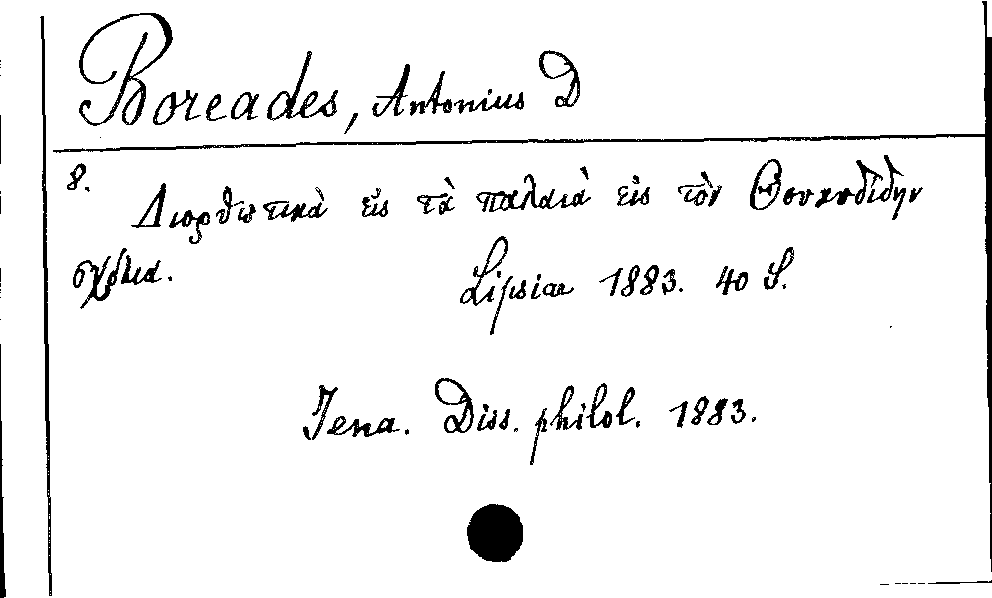 Boreades, Antonius D
8.
Διορθωτικὰ εἰς τὰ παλαιὰ εἰς τὸν Θουκυδίδην
σχόλια. Lipsiae 1883. 40 S.
Jena. Diss. philol. 1883.